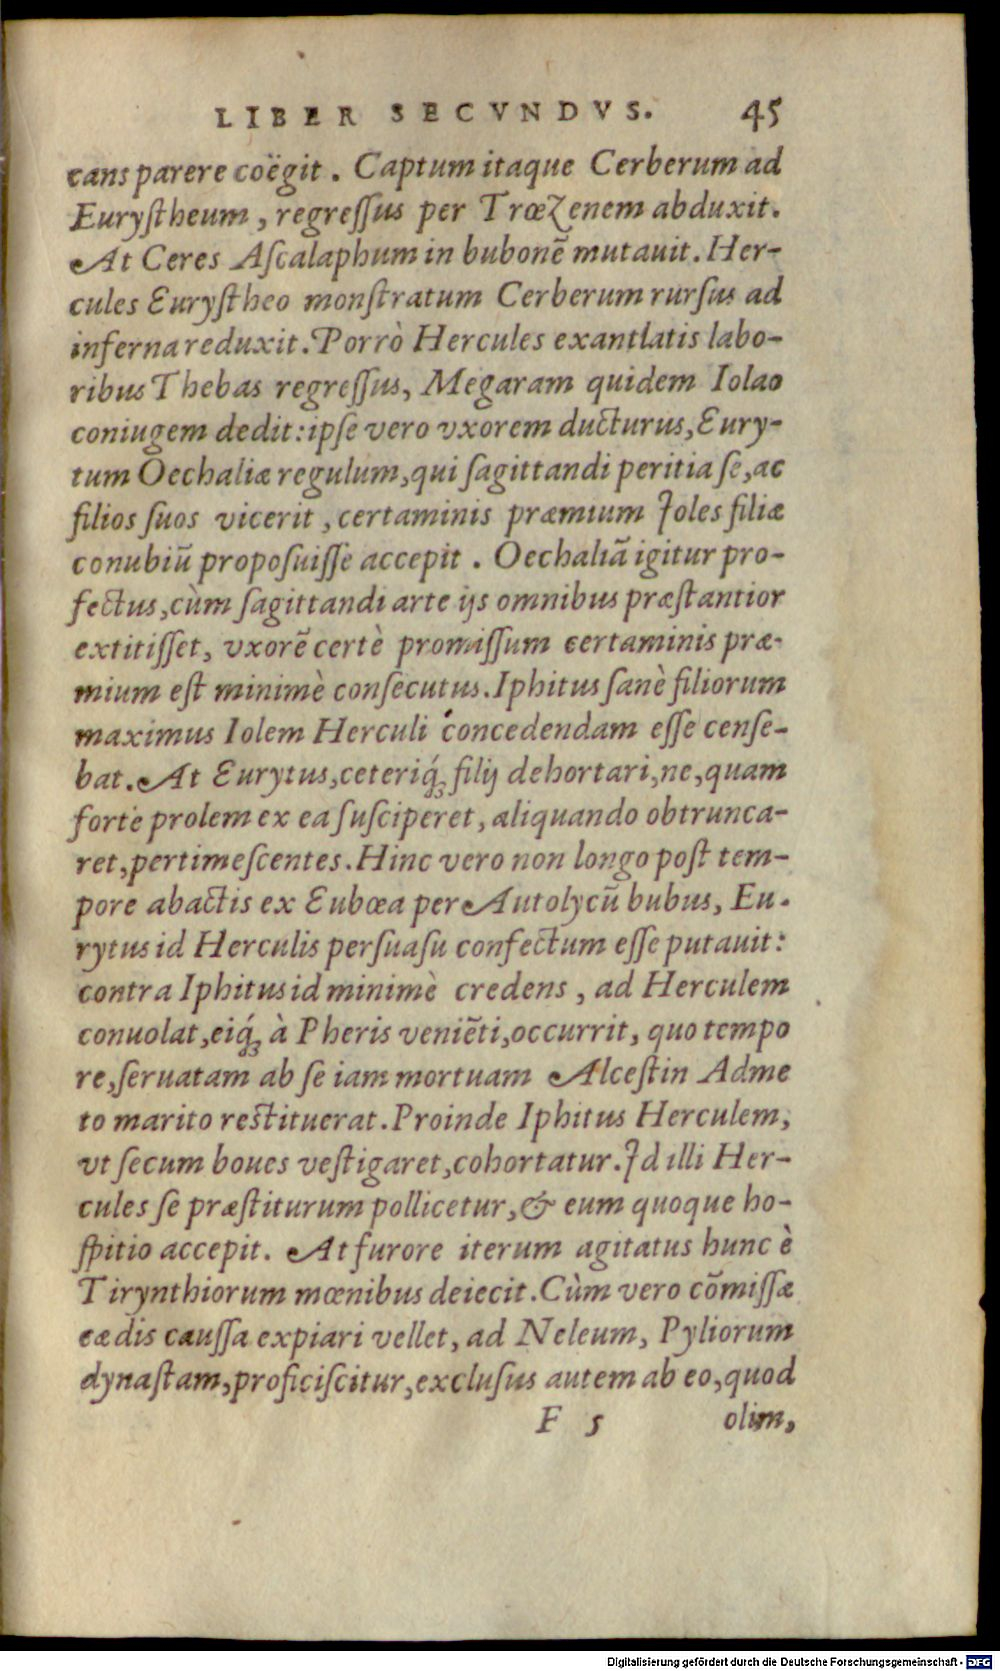 LIBER SECVNDVS. 45
cans parere coëgit. Captum itaque Cerberum ad
Eurystheum, regressus per Trœzenem abduxit.
At Ceres Ascalaphum in bubonẽ mutauit. Her-
cules Eurystheo monstratum Cerberum rursus ad
inferna reduxit. Porrò Hercules exantlatis labo-
ribus Thebas regressus, Megaram quidem Iolao
coniugem dedit: ipse vero vxorem ducturus, Eury-
tum Oechaliæ regulum, qui sagittandi peritia se, ac
filios suos vicerit, certaminis præmium Ioles filiæ
conubiũ proposuisse accepit. Oechaliã igitur pro-
fectus, cùm sagittandi arte ijs omnibus præstantior
extitisset, vxorẽ certè promissum certaminis præ-
mium est minimè consecutus. Iphitus sanè filiorum
maximus Iolem Herculi concedendam esse cense-
bat. At Eurytus, ceteriq́; filij dehortari, ne, quam
forte prolem ex ea susciperet, aliquando obtrunca-
ret, pertimescentes. Hinc vero non longo post tem-
pore abactis ex Eubœa per Autolycũ bubus, Eu-
rytus id Herculis persuasu confectum esse putauit:
contra Iphitus id minimè credens, ad Herculem
conuolat, eiq́; à Pheris veniẽti, occurrit, quo tempo
re, seruatam ab se iam mortuam Alcestin Adme
to marito restituerat. Proinde Iphitus Herculem,
vt secum boues vestigaret, cohortatur. Id illi Her-
cules se præstiturum pollicetur, & eum quoque ho-
spitio accepit. At furore iterum agitatus hunc è
Tirynthiorum mœnibus deiecit. Cùm vero cõmissæ
cædis caussa expiari vellet, ad Neleum, Pyliorum
dynastam, proficiscitur, exclusus autem ab eo, quod
F 5 olim,
Digitalisierung gefördert durch die Deutsche Forschungsgemeinschaft - DFG